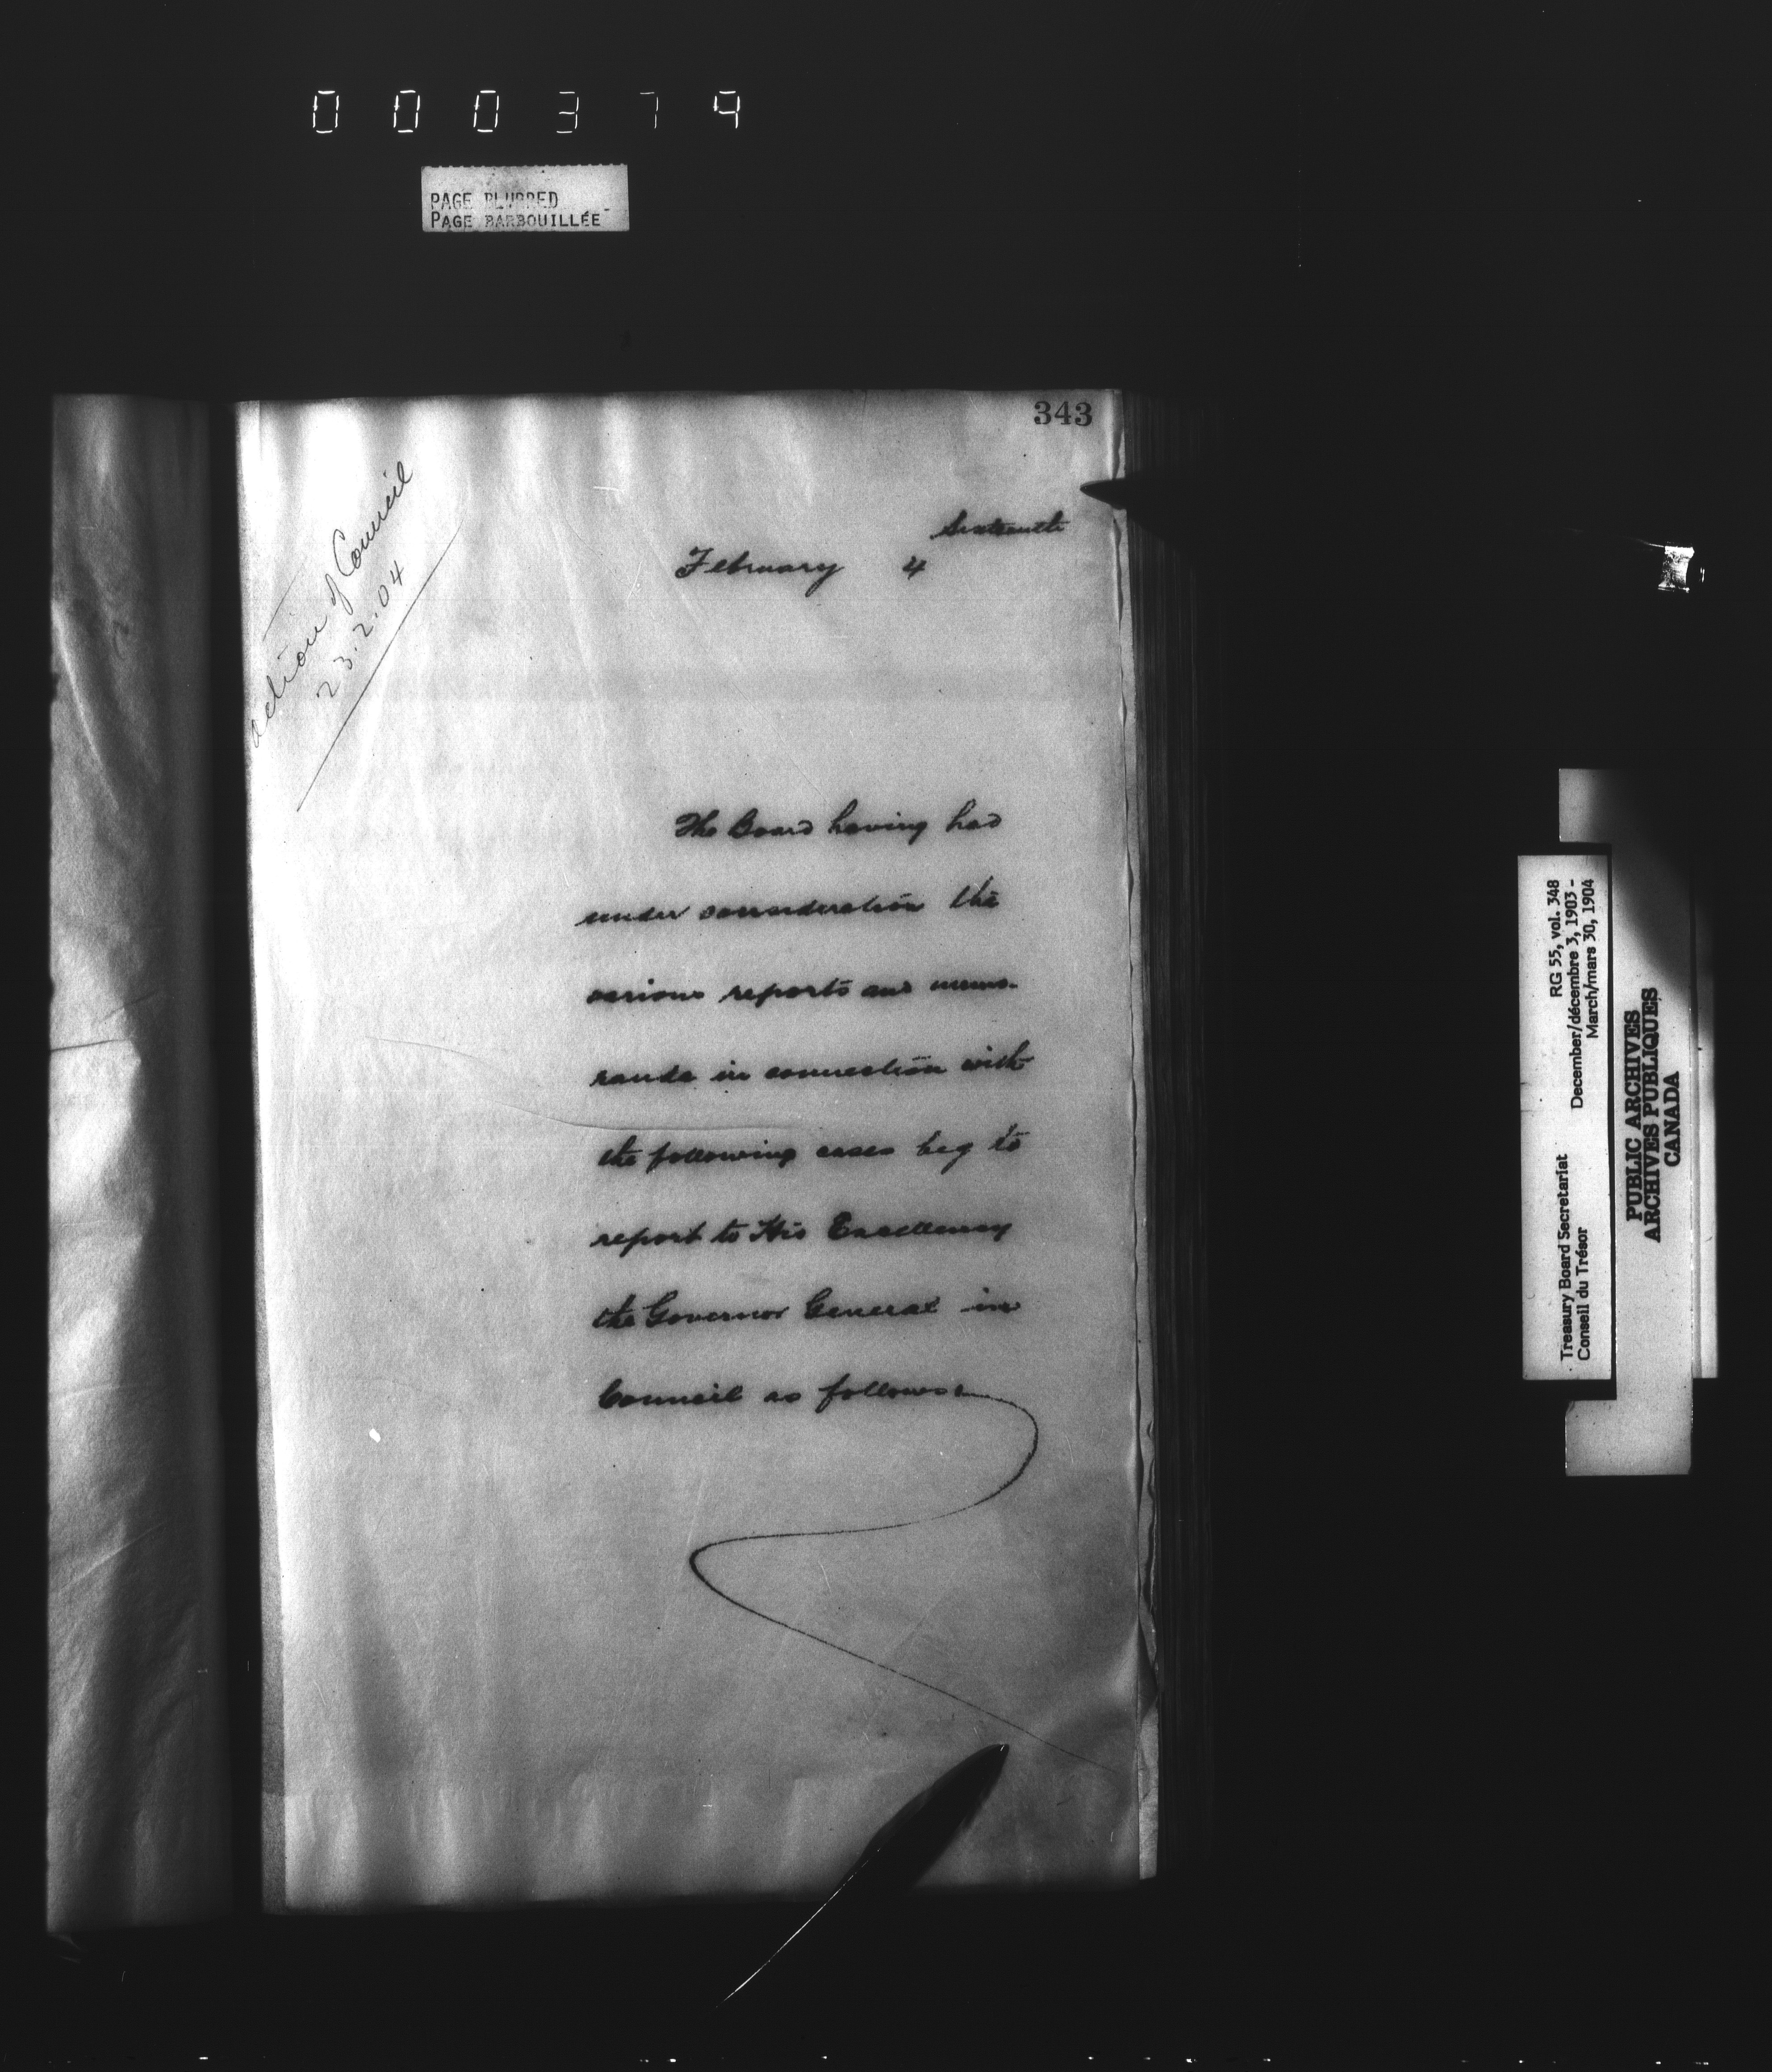 000379
PAGE BLURRED
PAGE BARBOUILLÉE
343
action of Council
23.2.04
Sixteenth
February 4
The Board having had
under consideration the
various reports and memo-
randa in connection with
the following cases beg to
report to His Excellency
the Governor General in
Council as follows:
Treasury Board Secretariat RG 55, vol. 348
Conseil du Trésor December/décembre 3, 1903 -
March/mars 30, 1904
PUBLIC ARCHIVES
ARCHIVES PUBLIQUES
CANADA